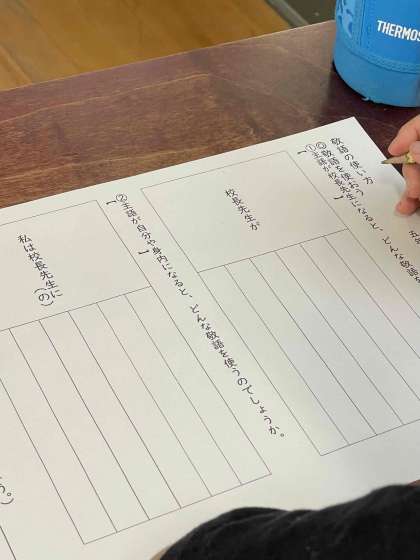 THERMOS
敬語の使い方
五
◎敬語を使おう
①主語が校長先生になると、どんな敬語を
【 】
校長先生が
②主語が自分や身内になると、どんな敬語を使うのでしょうか。
【 】
私は校長先生に
(の)
う。)